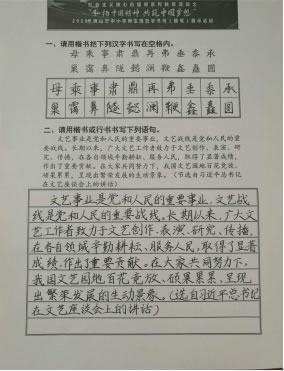 一、请用楷书把下列汉字书写在空格内。
母 乘 事 肃 鼎 再 弗 垂 黍 承
巢 霭 鼻 隧 懿 澜 鞭 鑫 矗 圆
母 乘 事 肃 鼎 再 弗 垂 黍 承
巢 霭 鼻 隧 懿 澜 鞭 鑫 矗 圆
二、请用楷书或行书书写下列语句。
文艺事业是党和人民的重要事业，文艺战线是党和人民的
重要战线。长期以来，广大文艺工作者致力于文艺创作、表演、研
究、传播，在各自领域辛勤耕耘、服务人民，取得了显著成绩，
作出了重要贡献。在大家共同努力下，我国文艺园地百花竞放、
硕果累累，呈现出繁荣发展的生动景象。（节选自习近平总书记
在文艺座谈会上的讲话）
文艺事业是党和人民的重要事业，文艺战
线是党和人民的重要战线。长期以来，广大文
艺工作者致力于文艺创作、表演、研究、传播，
在各自领域辛勤耕耘、服务人民，取得了显著
成绩，作出了重要贡献。在大家共同努力下，
我国文艺园地百花竞放、硕果累累，呈现
出繁荣发展的生动景象。（选自习近平总书记
在文艺座谈会上的讲话）